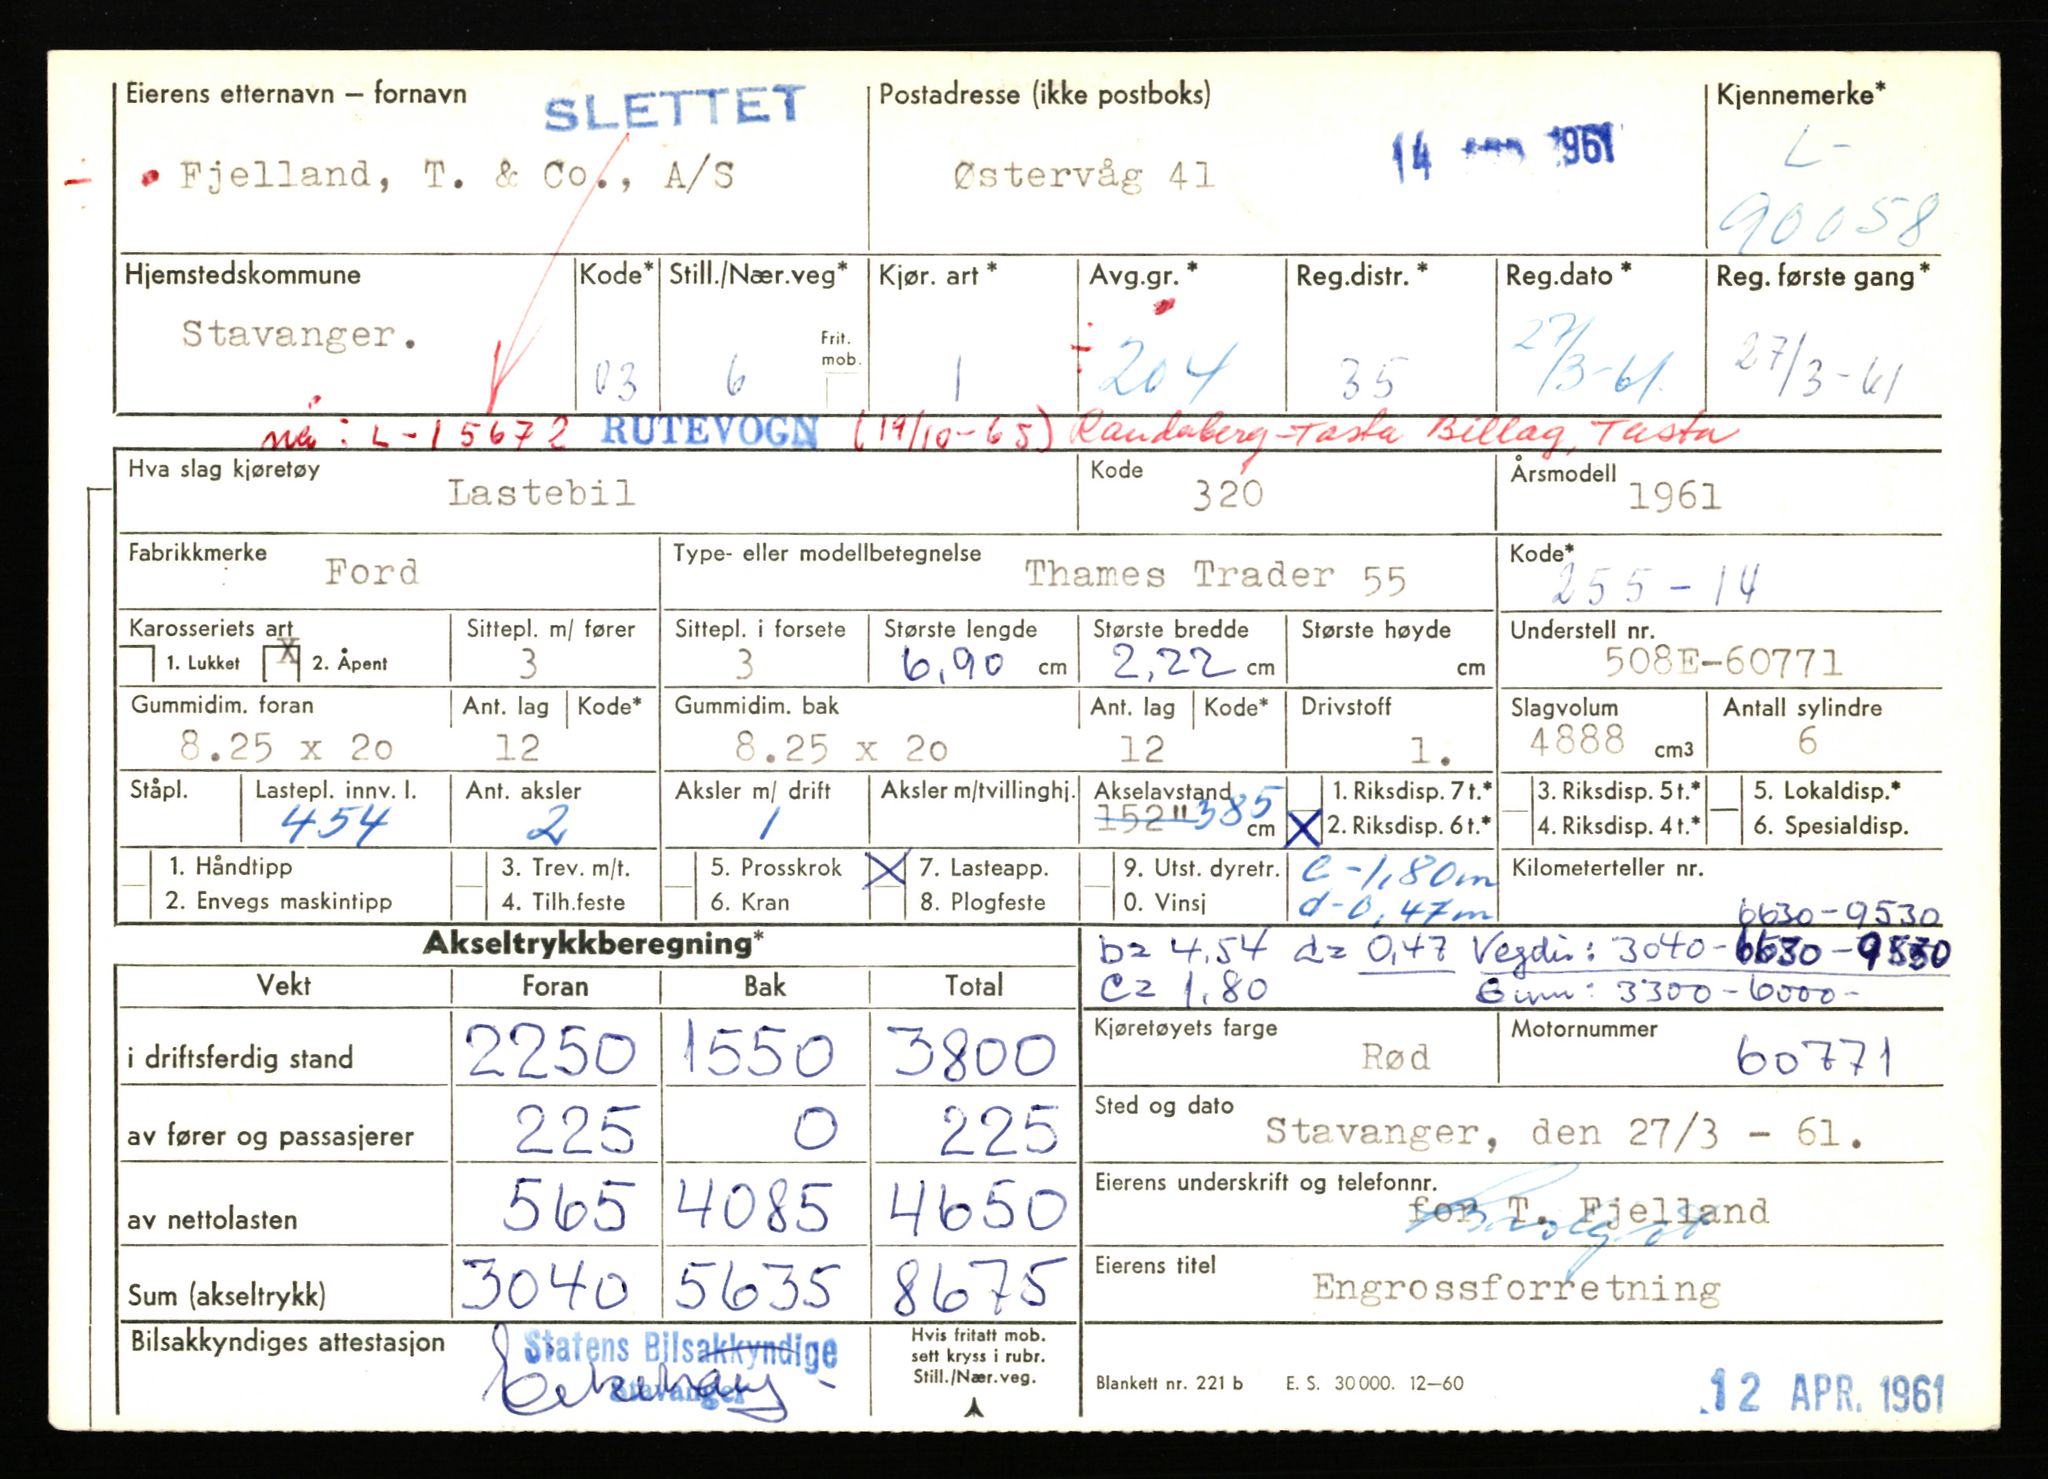 Eierens etternavn – fornavn SLETTET Postadresse (ikke postboks) Kjennemerke*
Fjelland, T. & Co., A/S Østervåg 41 14 1961 L-
90058
Hjemstedskommune Kode* Still./Nær.veg* Kjør. art * Avg.gr. * Reg.distr. * Reg.dato * Reg. første gang *
Stavanger. 03 6 Frit. mob. 1 204 35 27/3-61. 27/3-61
nå: L-15672 RUTEVOGN (19/10-65) Randaberg-Tasta Billag, Tasta
Hva slag kjøretøy Lastebil Kode 320 Årsmodell 1961
Fabrikkmerke Ford Type- eller modellbetegnelse Thames Trader 55 Kode* 255-14
Karosseriets art Sittepl. m/ fører Sittepl. i forsete Største lengde Største bredde Største høyde Understell nr.
1. Lukket X 2. Åpent 3 3 6,90 cm 2,22 cm cm 508E-60771
Gummidim. foran Ant. lag Kode* Gummidim. bak Ant. lag Kode* Drivstoff Slagvolum Antall sylindre
8.25 x 20 12 8.25 x 20 12 1. 4888 cm3 6
Ståpl. Lastepl. innv. l. Ant. aksler Aksler m/ drift Aksler m/tvillinghj. Akselavstand 1. Riksdisp. 7 t.* 3. Riksdisp. 5 t.* 5. Lokaldisp.*
454 2 1 152" 385 cm X 2. Riksdisp. 6 t.* 4. Riksdisp. 4 t.* 6. Spesialdisp.
1. Håndtipp 3. Trev. m/t. 5. Prosskrok X 7. Lasteapp. 9. Utst. dyretr. C-1,80m Kilometerteller nr.
2. Envegs maskintipp 4. Tilh.feste 6. Kran 8. Plogfeste 0. Vinsj d-0,47m 6630-9530
Akseltrykkberegning* b= 4,54 d= 0,47 Vegdir: 3040-6630-9530
Vekt Foran Bak Total C= 1,80 3300-6000-
i driftsferdig stand 2250 1550 3800 Kjøretøyets farge Rød Motornummer 60771
av fører og passasjerer 225 0 225 Sted og dato Stavanger, den 27/3 - 61.
av nettolasten 565 4085 4650 Eierens underskrift og telefonnr. for T. Fjelland
Sum (akseltrykk) 3040 5635 8675 Eierens titel Engrossforretning
Bilsakkyndiges attestasjon Statens Bilsakkyndige Stavanger Hvis fritatt mob. sett kryss i rubr. Still./Nær.veg. Blankett nr. 221 b E. S. 30 000. 12–60 12 APR. 1961